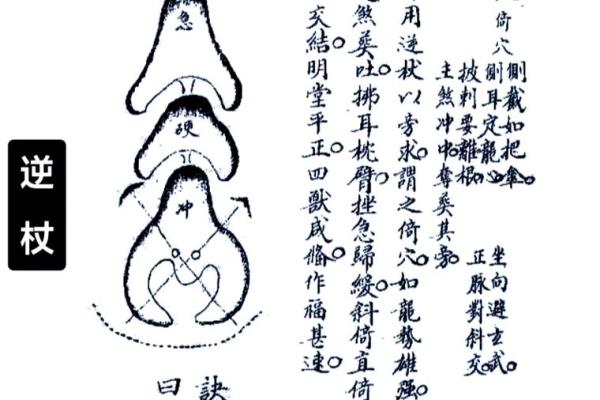 倚穴
側截如把傘
側耳定龍
披刺要離根
主煞冲中奪葬其旁
坐向避玄武
正脈對斜交
用逆杖以旁求。謂之倚穴。如龍勢雄强。
煞葬吐。拂耳枕臂。挫急歸緩。斜倚直倚
交結。明堂平正。四獸咸備。作福甚速。
急
硬
冲
訣曰
逆杖